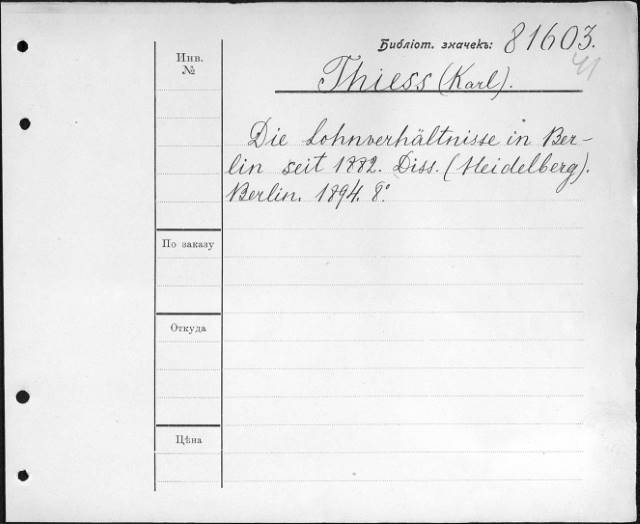 Библіот. значекъ: 81603.
Инв.
№
Thiess (Karl).
Die Lohnverhältnisse in Ber-
lin seit 1882. Diss. (Heidelberg).
Berlin. 1894. 8°.
По заказу
Откуда
Цѣна